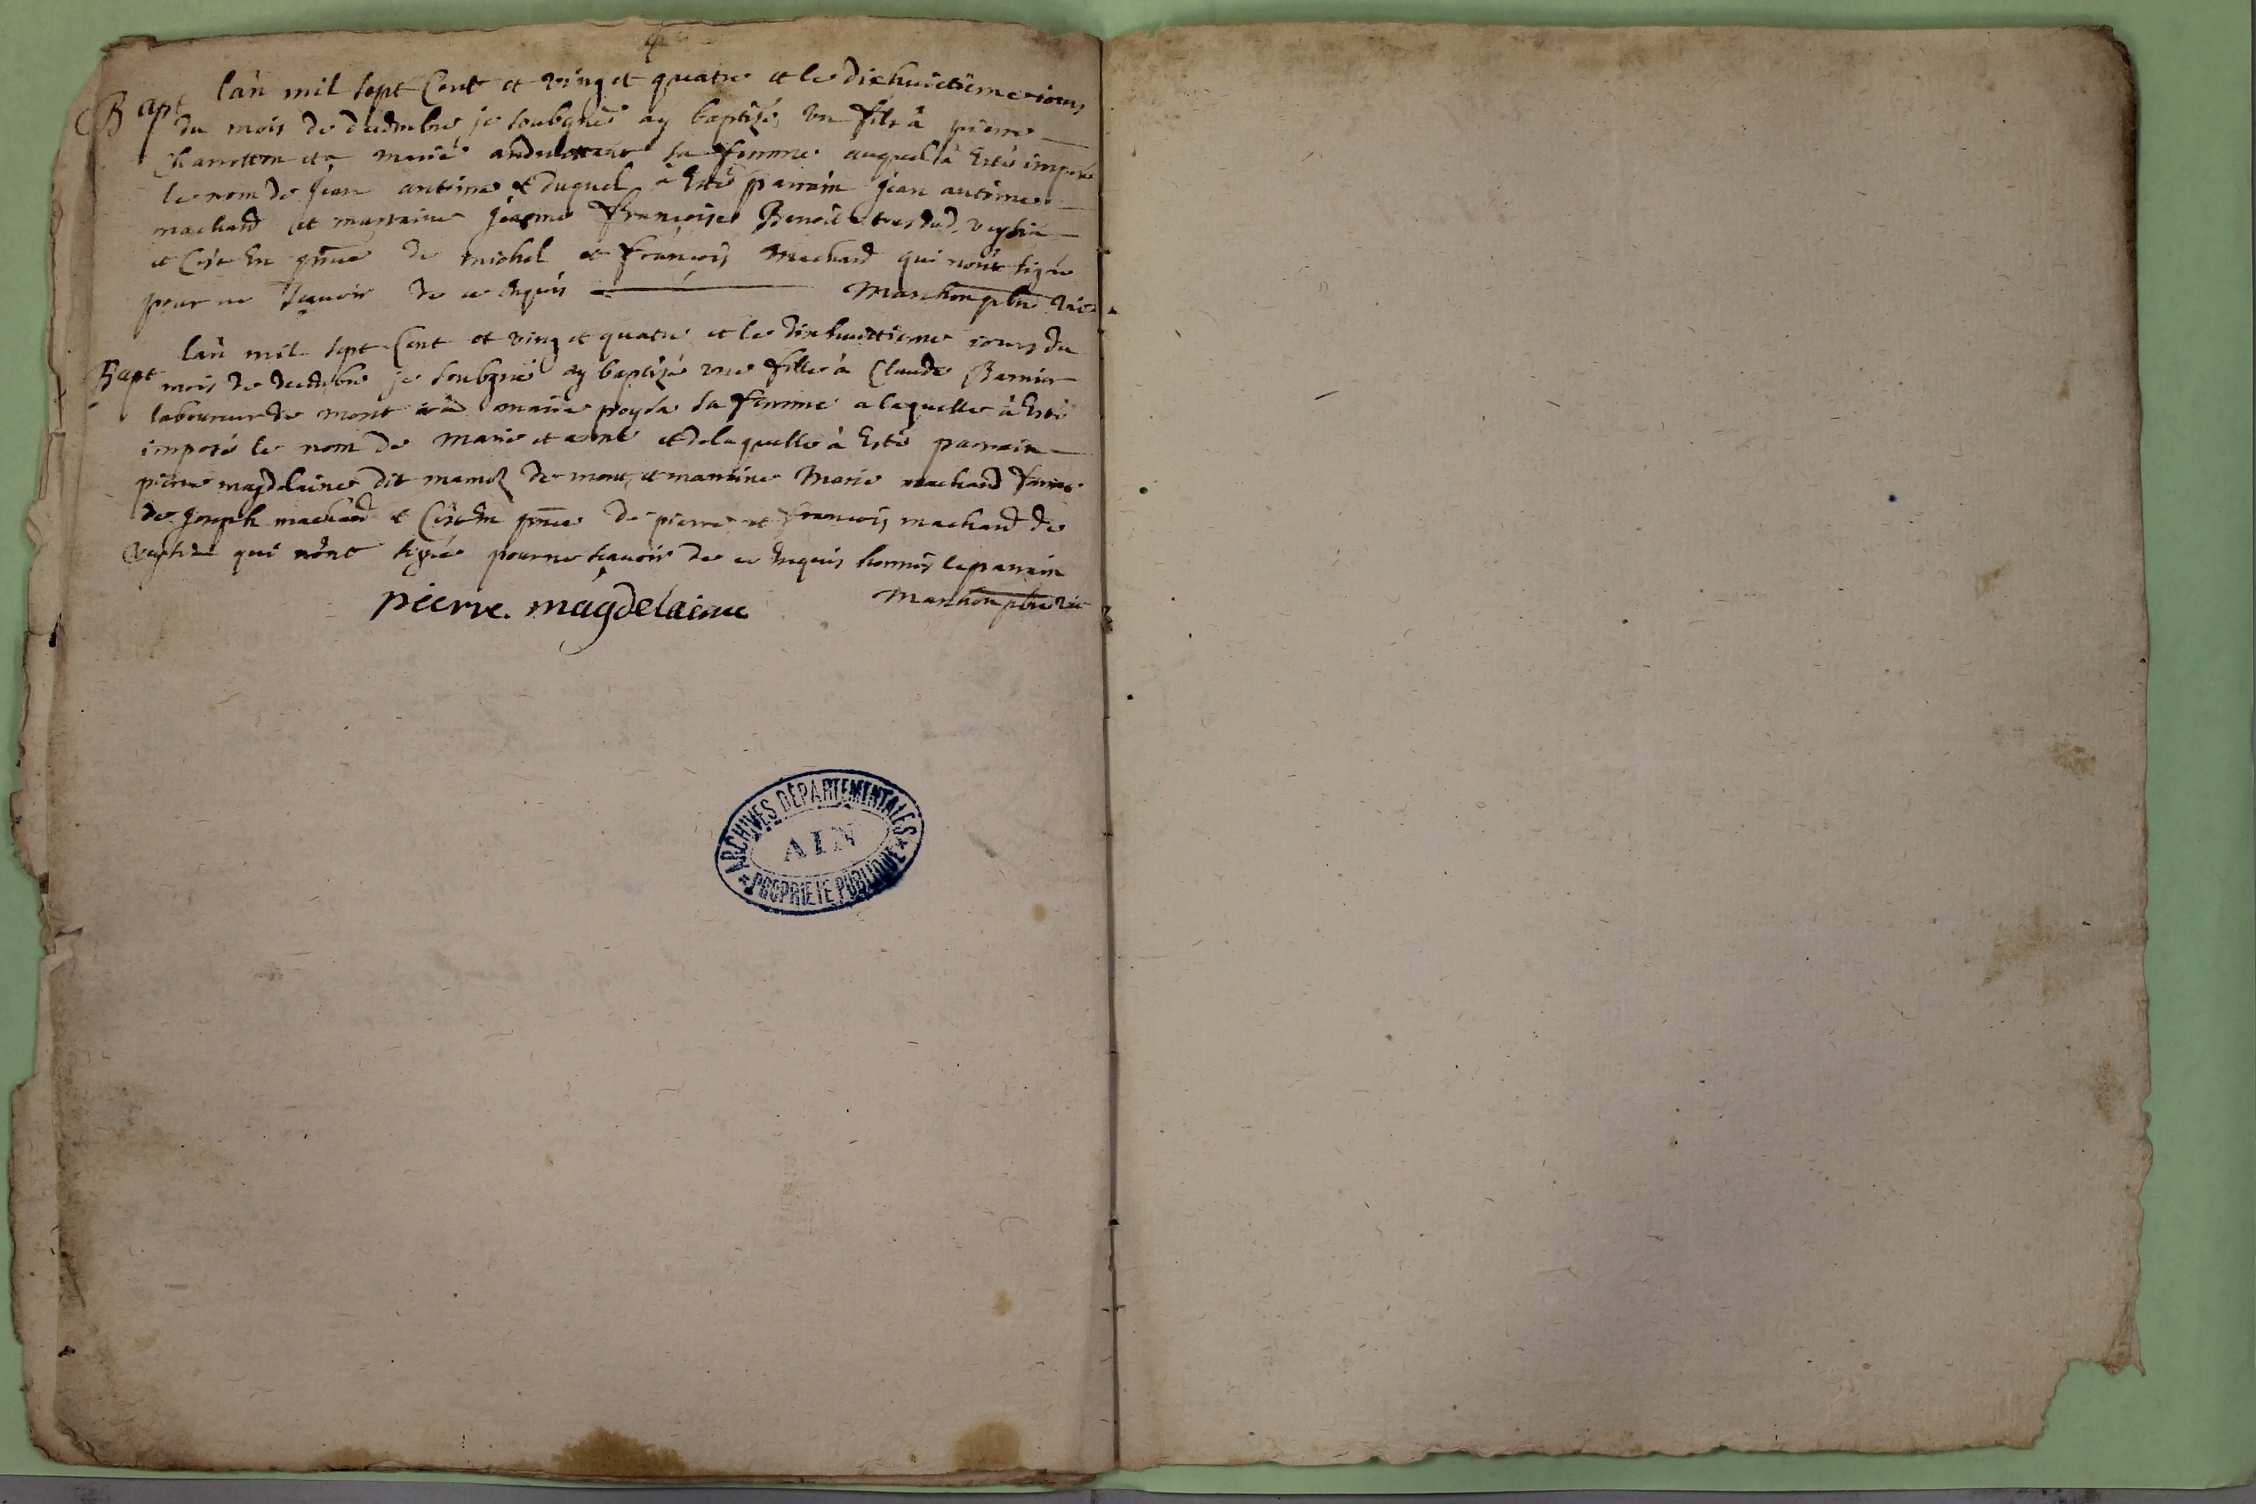 Bapt
lan mil sept Cent et vingt quatre et le dixhuictieme iours
du mois de decembre je soubgné ay baptizé un fils à pierre
et a marie sa femme auquel à Esté imposé
le nom de jean antoine et duquel à Esté parrain jean antoine
machard et marraine jeanne françoise Benoit
et C'est En pñce de michel et françois machard qui n'ont signé
pour ne sçavoir de ce Enquis Marchon pbre vic
Bapt
lan mil sept Cent et vingt quatre et le dixhuictieme iours du
mois de decembre je soubgné ay baptizé une fille à Claude Barnier
laboureur de mont et à marie sa femme a laquelle à Esté
imposé le nom de Marie et de laquelle à Esté parrain
pierre magdelaine dit de mont, et marraine Marie machard femme
de joseph machard et C'est En pñce de pierre et françois machard de
qui n'ont signé pour ne sçavoir de ce Enquis hormis le parrain
pierre. magdelaine Marchon pbre vic
ARCHIVES DEPARTEMENTALES
AIN
PROPRIETE PUBLIQUE